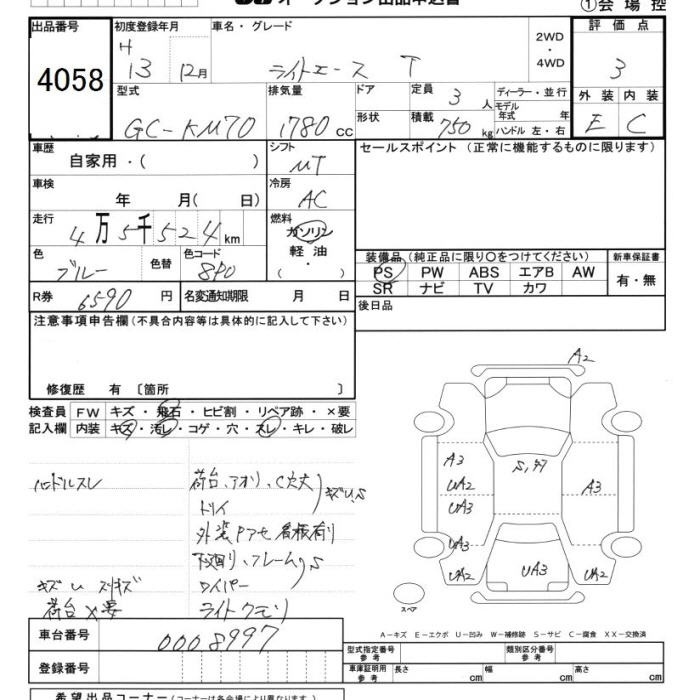 ①会場控
出品番号 初度登録年月 車名・グレード 2WD・4WD 評価点
4058 H 13 12月 ライトエース T 3
型式 排気量 ドア 定員 3人 ディーラー・並行 外装 内装
モデル年式 年
GC-KM70 1780CC 形状 積載 750kg ハンドル 左・右 E C
車歴 自家用・( ) シフト MT セールスポイント(正常に機能するものに限ります)
車検 年 月( 日) 冷房 AC
走行 4万5千524km 燃料 ガソリン
軽油
・
( )
色 ブルー 色替 色コード 8P0 装備品(純正品に限り○をつけてください) 新車保証書
PS PW ABS エアB AW 有・無
SR ナビ TV カワ
R券 6590円 名変通知期限 月 日 後日品
注意事項申告欄(不具合内容等は具体的に記入して下さい)
修復歴 有 〔箇所 〕
検査員 FW キズ・飛石・ヒビ割・リペア跡・×要
記入欄 内装 キズ・汚レ・コゲ・穴・スレ・キレ・破レ
ハンドルスレ 荷台、アオリ、C穴大 キズU,S
外装
下回り、フレームS
キズU ワイパー
荷台×要 ライトクモリ
A2
A3 S,ｻﾋ
UA2 A3
UA3
UA3
UA2 UA3 UA2
スペア
A－キズ E－エクボ U－凹み W－補修跡 S－サビ C－腐食 XX－交換済
車台番号 0008997
登録番号
型式指定番号 参考 類別区分番号 参考
車庫証明用 参考 長さ cm 幅 cm 高さ cm
希望出品コーナー(コーナーは各会場により異なります。)